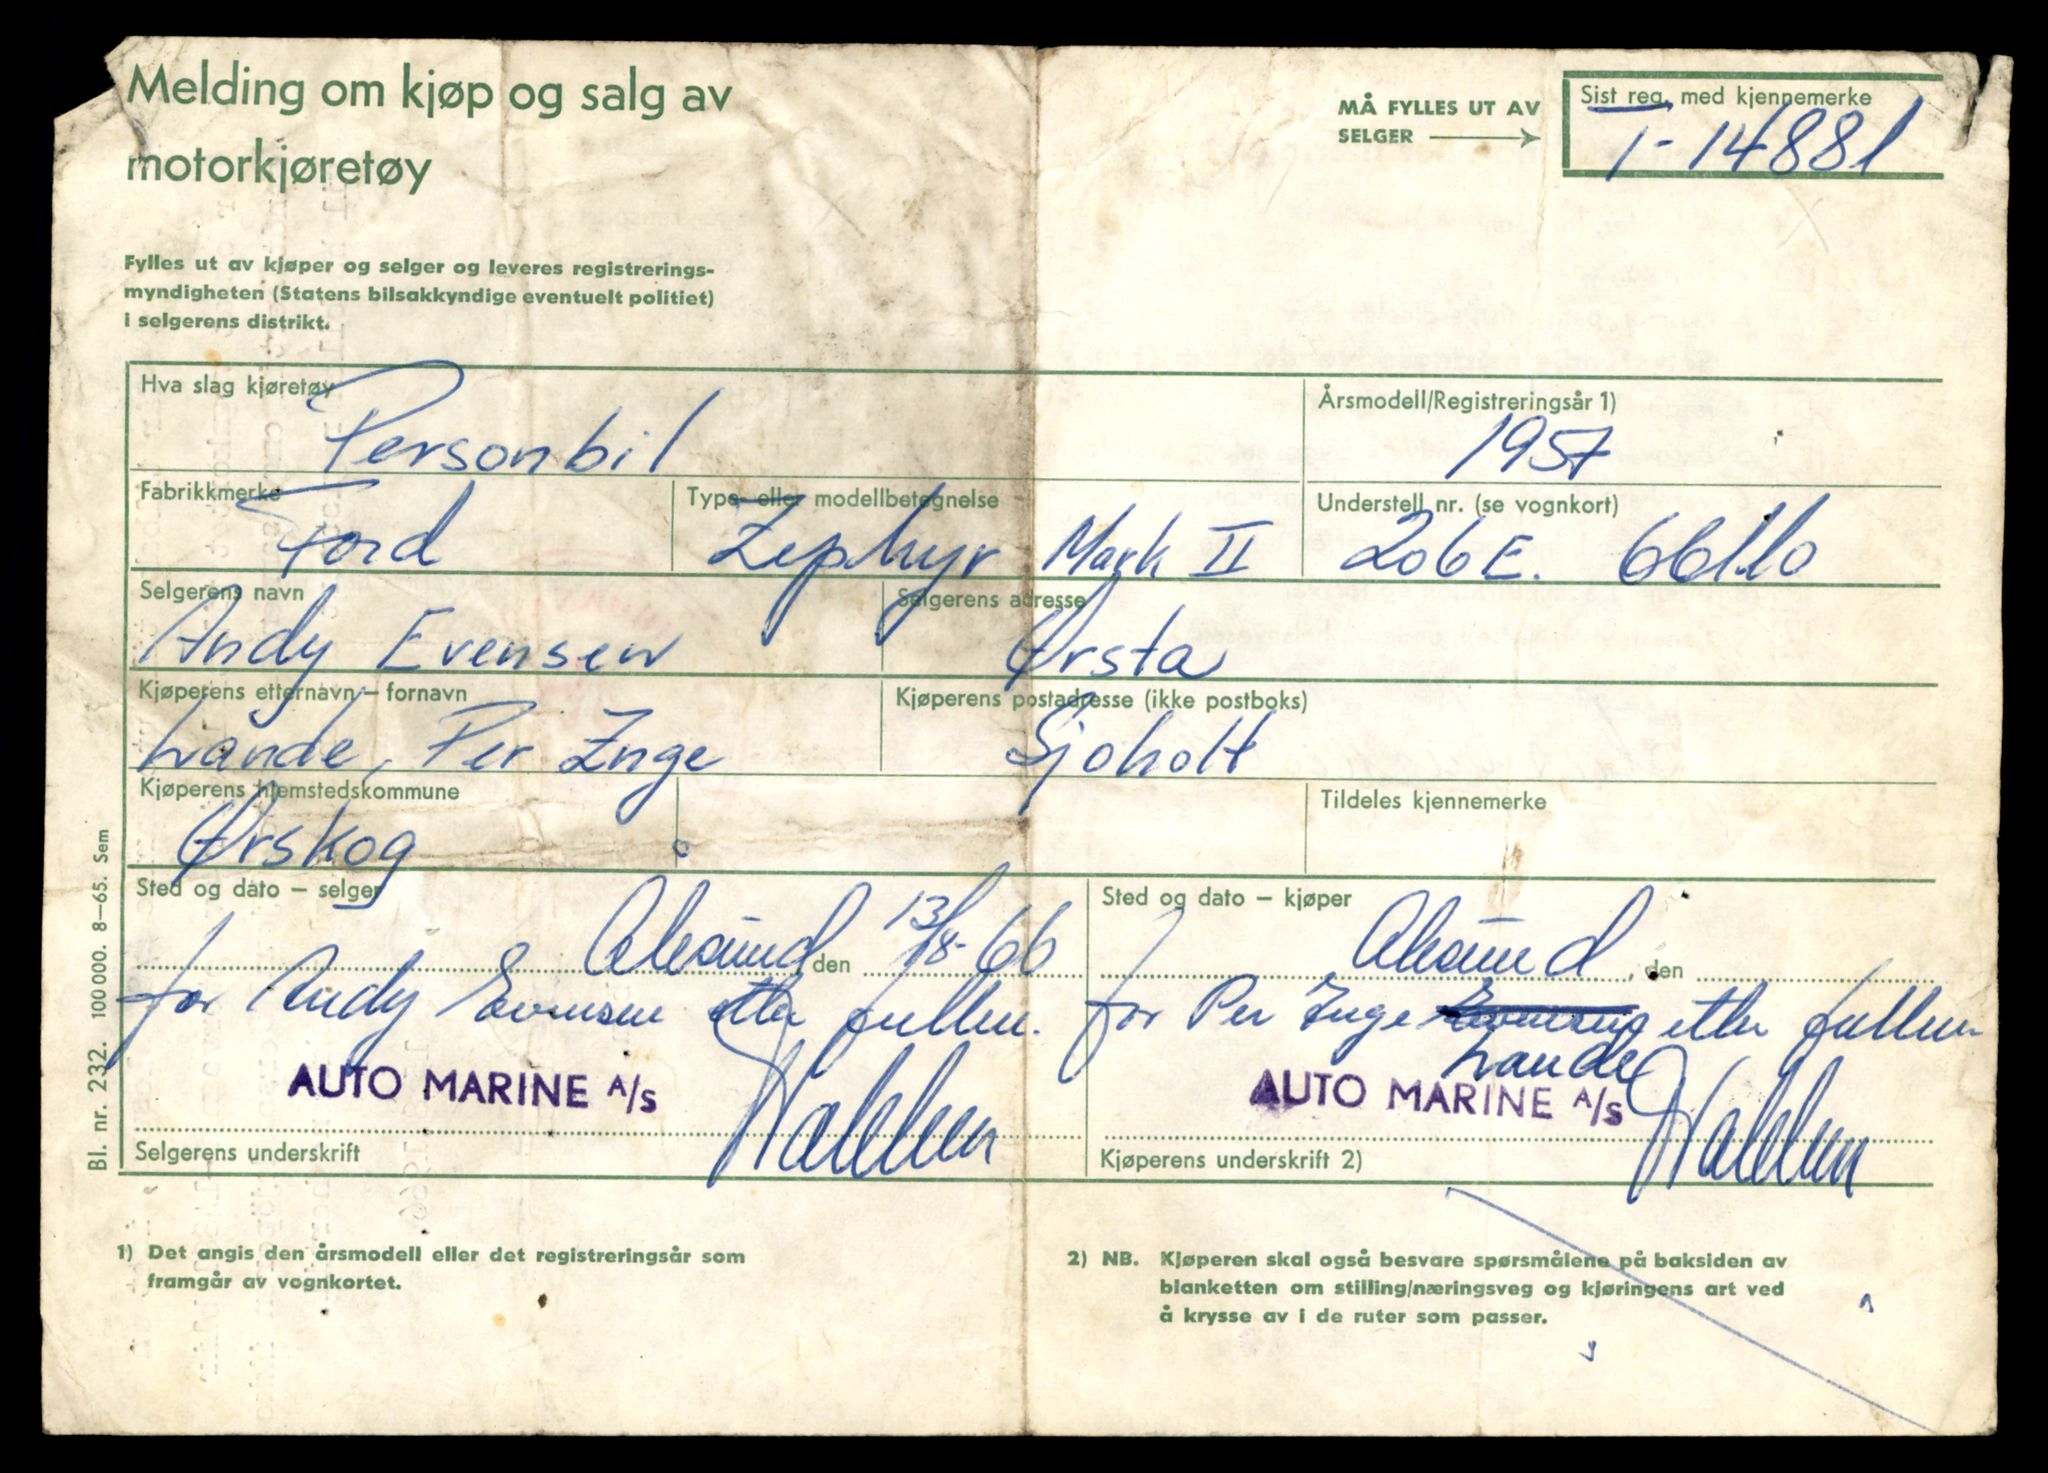 Melding om kjøp og salg av
motorkjøretøy
MÅ FYLLES UT AV
SELGER
Sist reg. med kjennemerke
T-14881
Fylles ut av kjøper og selger og leveres registrerings-
myndigheten (Statens bilsakkyndige eventuelt politiet)
i selgerens distrikt.
Hva slag kjøretøy
Personbil
Årsmodell/Registreringsår 1)
1957
Fabrikkmerke
Ford
Type- eller modellbetegnelse
Zephyr Mark II
Understell nr. (se vognkort)
206E.
Selgerens navn
Andy Evensen
Selgerens adresse
Ørsta
Kjøperens etternavn – fornavn
Lande, Per Inge
Kjøperens postadresse (ikke postboks)
Sjøholt
Kjøperens hjemstedskommune
Ørskog
Tildeles kjennemerke
Sted og dato – selger
Ålesund, den 13/8-66
for Andy Evensen etter fullm.
AUTO MARINE A/S
Selgerens underskrift
Sted og dato – kjøper
Ålesund, den
for Per Inge Evensen etter fullm.
Lande
AUTO MARINE A/S
Kjøperens underskrift 2)
1) Det angis den årsmodell eller det registreringsår som
framgår av vognkortet.
2) NB. Kjøperen skal også besvare spørsmålene på baksiden av
blanketten om stilling/næringsveg og kjøringens art ved
å krysse av i de ruter som passer.
Bl. nr. 232. 100 000. 8–65. Sem